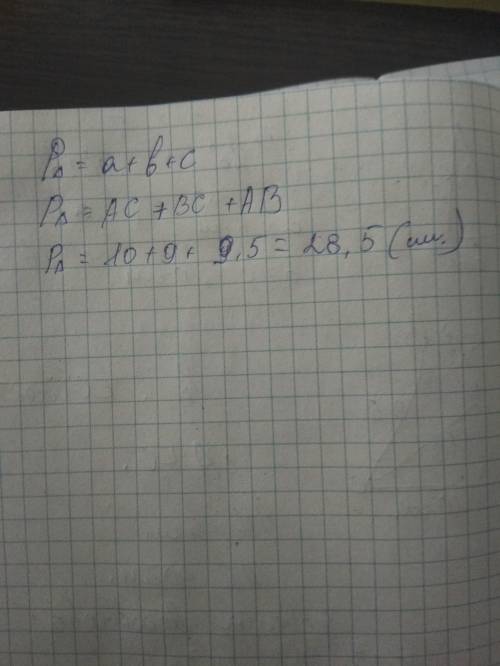 P△ = a + b + c
P△ = AC + BC + AB
P△ = 10 + 9 + 9,5 = 28,5 (см.)